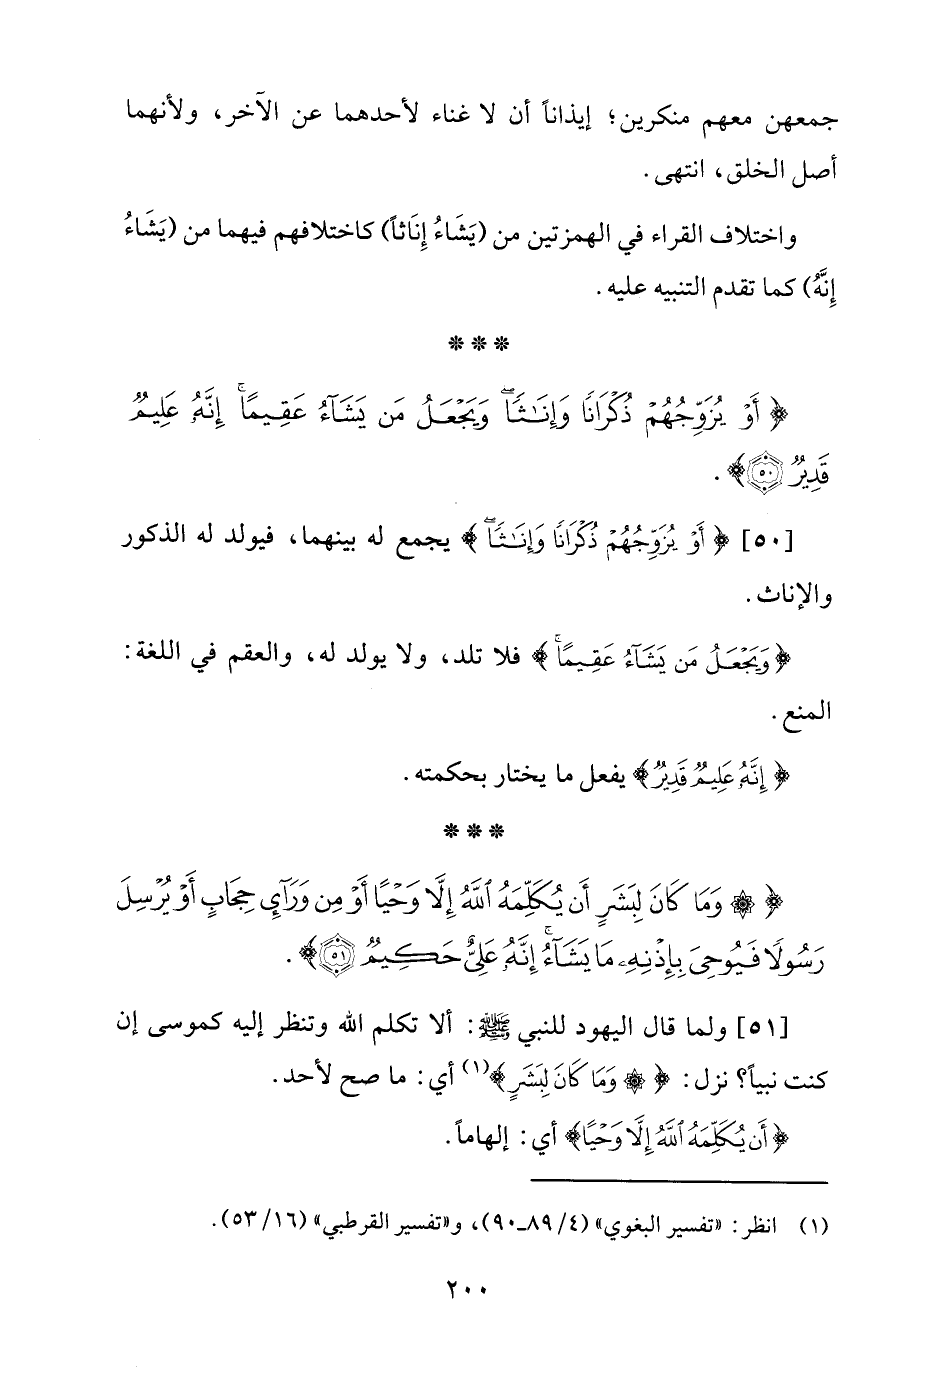 جمعهن معهم منكرين؛ إيذاناً أن لا غناء لأحدهما عن الآخر، ولأنهما
أصل الخلق، انتهى.
واختلاف القراء في الهمزتين من (يَشَاءُ إِنَاثاً) كاختلافهم فيهما من (يَشَاءُ
إِنَّهُ) كما تقدم التنبيه عليه.
***
﴿ أَوْ يُزَوِّجُهُمْ ذُكْرَانًا وَإِنَٰثًاۖ وَيَجْعَلُ مَن يَشَآءُ عَقِيمًاۚ إِنَّهُۥ عَلِيمٌ
قَدِيرٌ ٥٠﴾.
[٥٠] ﴿ أَوْ يُزَوِّجُهُمْ ذُكْرَانًا وَإِنَٰثًاۖ ﴾ يجمع له بينهما، فيولد له الذكور
والإناث.
﴿وَيَجْعَلُ مَن يَشَآءُ عَقِيمًاۚ﴾ فلا تلد، ولا يولد له، والعقم في اللغة:
المنع.
﴿ إِنَّهُۥ عَلِيمٌ قَدِيرٌ﴾ يفعل ما يختار بحكمته.
***
﴿ ۞ وَمَا كَانَ لِبَشَرٍ أَن يُكَلِّمَهُ ٱللَّهُ إِلَّا وَحْيًا أَوْ مِن وَرَآيِٕ حِجَابٍ أَوْ يُرْسِلَ
رَسُولًا فَيُوحِيَ بِإِذْنِهِۦ مَا يَشَآءُۚ إِنَّهُۥ عَلِيٌّ حَكِيمٌ ٥١﴾.
[٥١] ولما قال اليهود للنبي ﷺ: ألا تكلم الله وتنظر إليه كموسى إن
كنت نبياً؟ نزل: ﴿ ۞ وَمَا كَانَ لِبَشَرٍ﴾(١) أي: ما صح لأحد.
﴿أَن يُكَلِّمَهُ ٱللَّهُ إِلَّا وَحْيًا﴾ أي: إلهاماً.
(١) انظر: «تفسير البغوي» (٤/ ٨٩ـ٩٠)، و«تفسير القرطبي» (١٦/ ٥٣).
٢٠٠